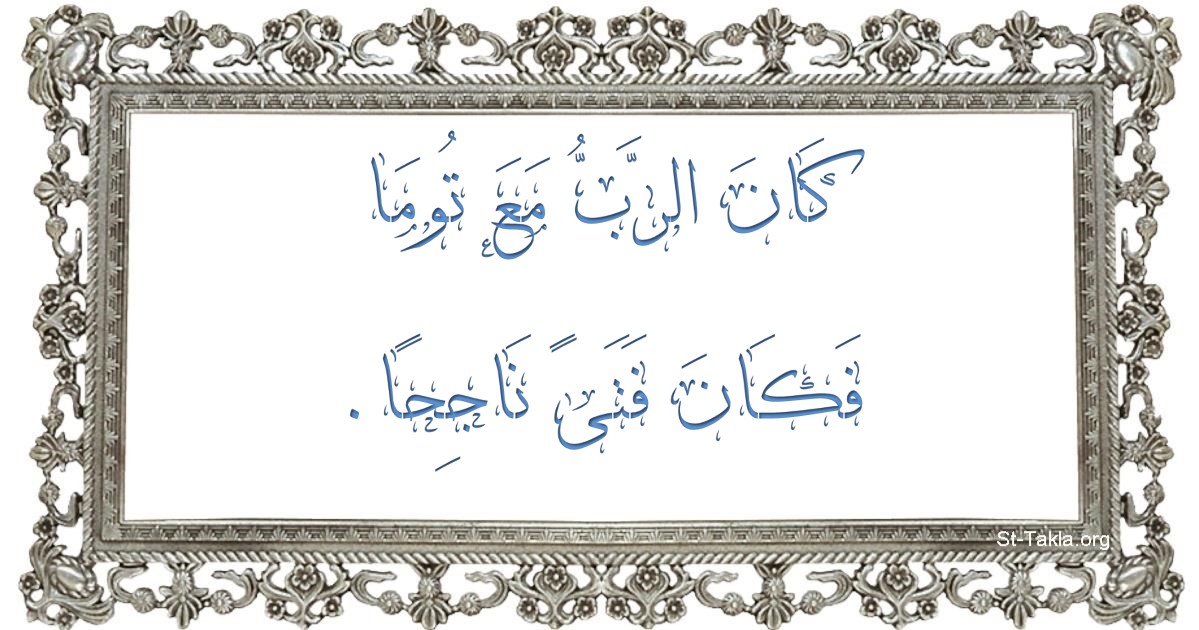 كَانَ الرَّبُّ مَعَ تُومَا
فَكَانَ فَتَىً نَاجِحًا .
St-Takla.org